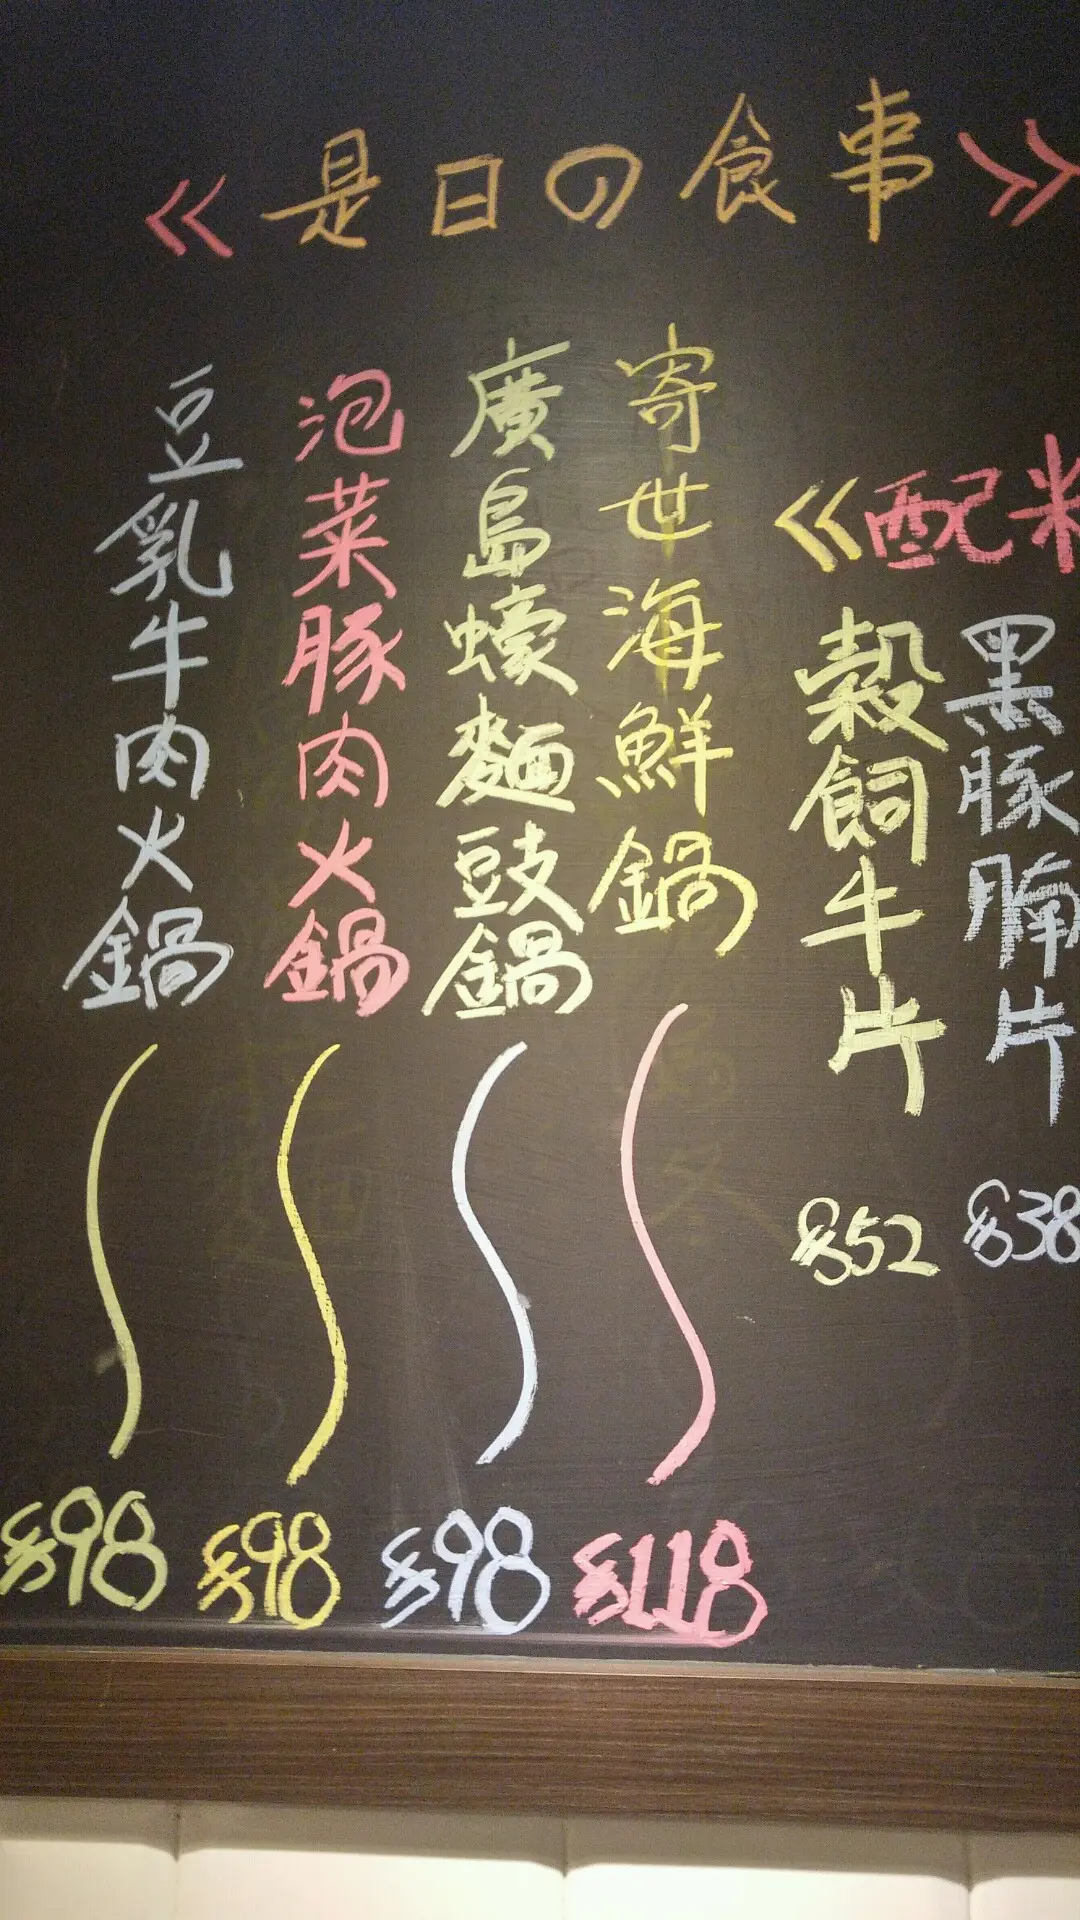 《是日の食事》
寄世海鮮鍋
$118
廣島蠔麵豉鍋
$98
泡菜豚肉火鍋
$98
豆乳牛肉火鍋
$98
《配料
黑豚腩片
$38
穀飼牛片
$52